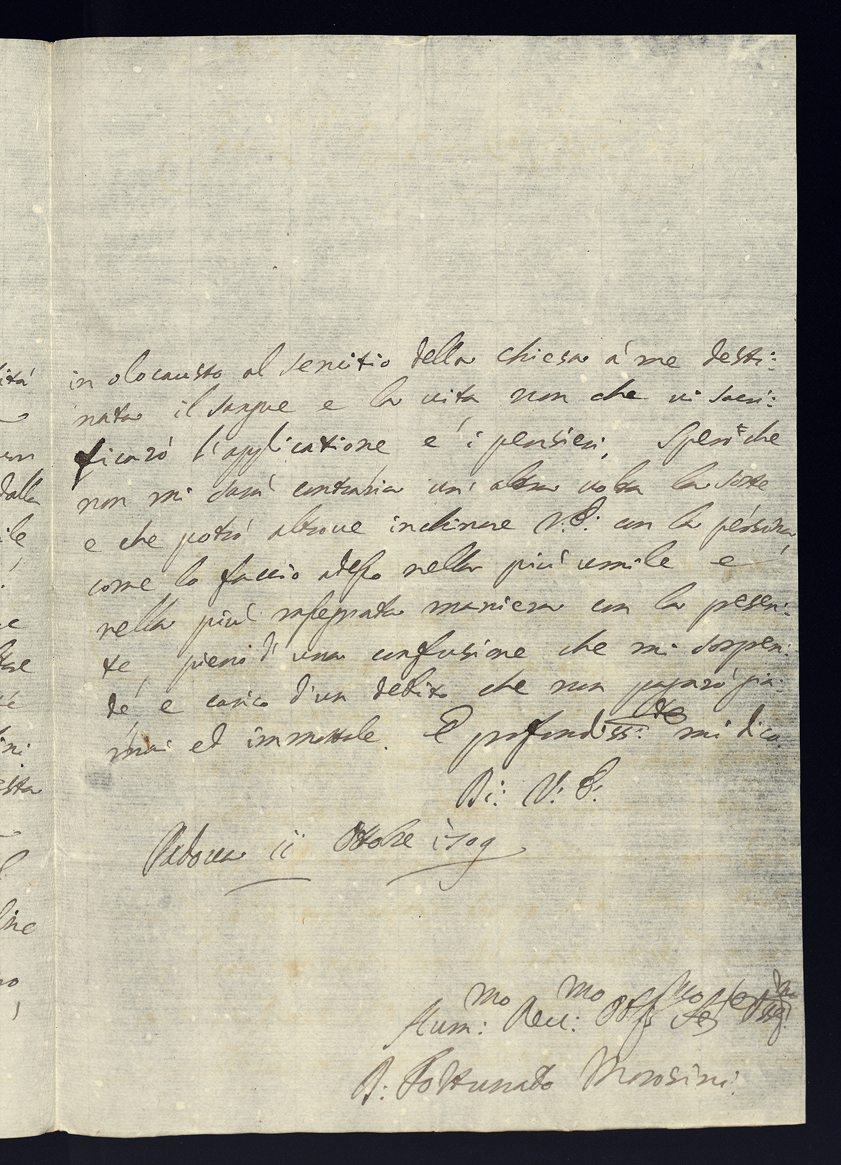 in olocausto al servitio della chiesa à me desti:
nata il sangue e la vita non che vi sacri:
ficarò l'applicatione e' i pensieri. Spero che
non mi sarà contraria un' altra volta la sorte
e che potrò altrove inchinare V: E: con la persona,
come lo faccio adesso nella più umile e
nella più rassegnata maniera con la presen:
te, pieno di una confusione che mi sorpren:
de, e carico d'un debito che non pagarò gia:
mai ed immortale. E profondiss: mi dico.
Di: V: E:
Padova ii Ottobre i709
Hum: mo Dev: mo
D: Fortunato Morosini
ità
dalla
ile
esta